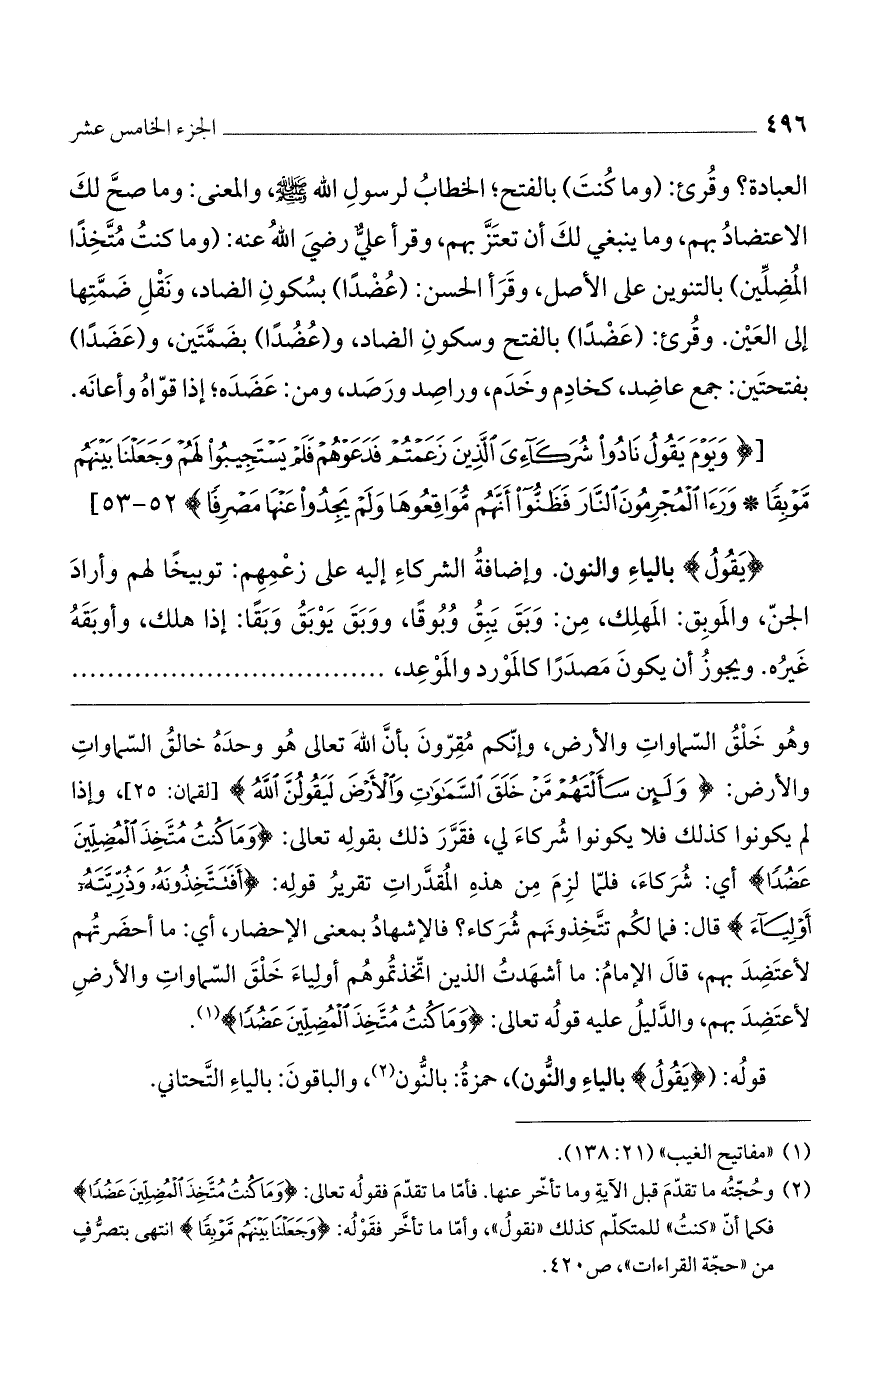 ٤٩٦ ـــــــــــــــــــــــــــــــــــــــــــــــــــــــــ الجزء الخامس عشر
العبادة؟ وقُرئ: (وما كُنتَ) بالفتح؛ الخطابُ لرسولِ الله ﷺ، والمعنى: وما صحَّ لكَ
الاعتضادُ بهم، وما ينبغي لكَ أن تعتَزَّ بهم، وقرأ عليٌّ رضيَ اللهُ عنه: (وما كنتُ مُتَّخِذًا
المُضِلِّين) بالتنوين على الأصل، وقَرَأ الحسن: (عُضْدًا) بسُكونِ الضاد، ونَقْلِ ضَمَّتِها
إلى العَيْن. وقُرئ: (عَضْدًا) بالفتح وسكونِ الضاد، و(عُضُدًا) بضَمَّتَين، و(عَضَدًا)
بفتحتَين: جمع عاضِد، كخادِم وخَدَم، وراصِد ورَصَد، ومن: عَضَدَه؛ إذا قوّاهُ وأعانَه.
[﴿ وَيَوْمَ يَقُولُ نَادُوا۟ شُرَكَآءِىَ ٱلَّذِينَ زَعَمْتُمْ فَدَعَوْهُمْ فَلَمْ يَسْتَجِيبُوا۟ لَهُمْ وَجَعَلْنَا بَيْنَهُم
مَّوْبِقًا * وَرَءَا ٱلْمُجْرِمُونَ ٱلنَّارَ فَظَنُّوٓا۟ أَنَّهُم مُّوَاقِعُوهَا وَلَمْ يَجِدُوا۟ عَنْهَا مَصْرِفًا ﴾ ٥٢-٥٣]
﴿يَقُولُ﴾ بالياءِ والنون. وإضافةُ الشركاءِ إليه على زعْمِهِم: توبيخًا لهم وأرادَ
الجنّ، والمَوبِق: المَهلِك، مِن: وَبَقَ يَبِقُ وُبُوقًا، ووَبَقَ يَوْبَقُ وَبَقًا: إذا هلك، وأوبَقَهُ
غَيرُه. ويجوزُ أن يكونَ مَصدَرًا كالمَوْرد والمَوْعِد، ....................................
وهُو خَلْقُ السّماواتِ والأرض، وإنّكم مُقِرّونَ بأنَّ اللهَ تعالى هُو وحدَهُ خالقُ السّماواتِ
والأرض: ﴿ وَلَئِن سَأَلْتَهُم مَّنْ خَلَقَ ٱلسَّمَٰوَٰتِ وَٱلْأَرْضَ لَيَقُولُنَّ ٱللَّهُ ﴾ [لقمان: ٢٥]، وإذا
لم يكونوا كذلك فلا يكونوا شُركاءَ لي، فقَرَّرَ ذلك بقولِه تعالى: ﴿وَمَا كُنتُ مُتَّخِذَ ٱلْمُضِلِّينَ
عَضُدًا﴾ أي: شُرَكاءَ، فلمّا لزِمَ مِن هذهِ المُقدَّراتِ تقريرُ قولِه: ﴿أَفَتَتَّخِذُونَهُۥ وَذُرِّيَّتَهُۥٓ
أَوْلِيَآءَ ﴾ قال: فما لكُم تتَّخِذونَهم شُرَكاء؟ فالإشهادُ بمعنى الإحضار، أي: ما أحضَرتُهم
لأعتَضِدَ بهم، قالَ الإمامُ: ما أشهَدتُ الذين اتّخذتمُوهُم أولياءَ خَلْقَ السّماواتِ والأرضِ
لأعتَضِدَ بهم، والدَّليلُ عليه قولُه تعالى: ﴿وَمَا كُنتُ مُتَّخِذَ ٱلْمُضِلِّينَ عَضُدًا﴾(١).
قولُه: (﴿يَقُولُ﴾ بالياءِ والنُّون)، حمزةُ: بالنُّون(٢)، والباقونَ: بالياءِ التَّحتاني.
(١) «مفاتيح الغيب» (٢١: ١٣٨).
(٢) وحُجّتُه ما تقدّمَ قبل الآيةِ وما تأخّر عنها. فأمّا ما تقدّمَ فقولُه تعالى: ﴿وَمَا كُنتُ مُتَّخِذَ ٱلْمُضِلِّينَ عَضُدًا﴾
فكما أنّ «كنتُ» للمتكلّم كذلك «نقولُ»، وأمّا ما تأخَّر فقَوْلُه: ﴿وَجَعَلْنَا بَيْنَهُم مَّوْبِقًا ﴾ انتهى بتصرُّفٍ
من «حجّة القراءات»، ص٤٢٠.